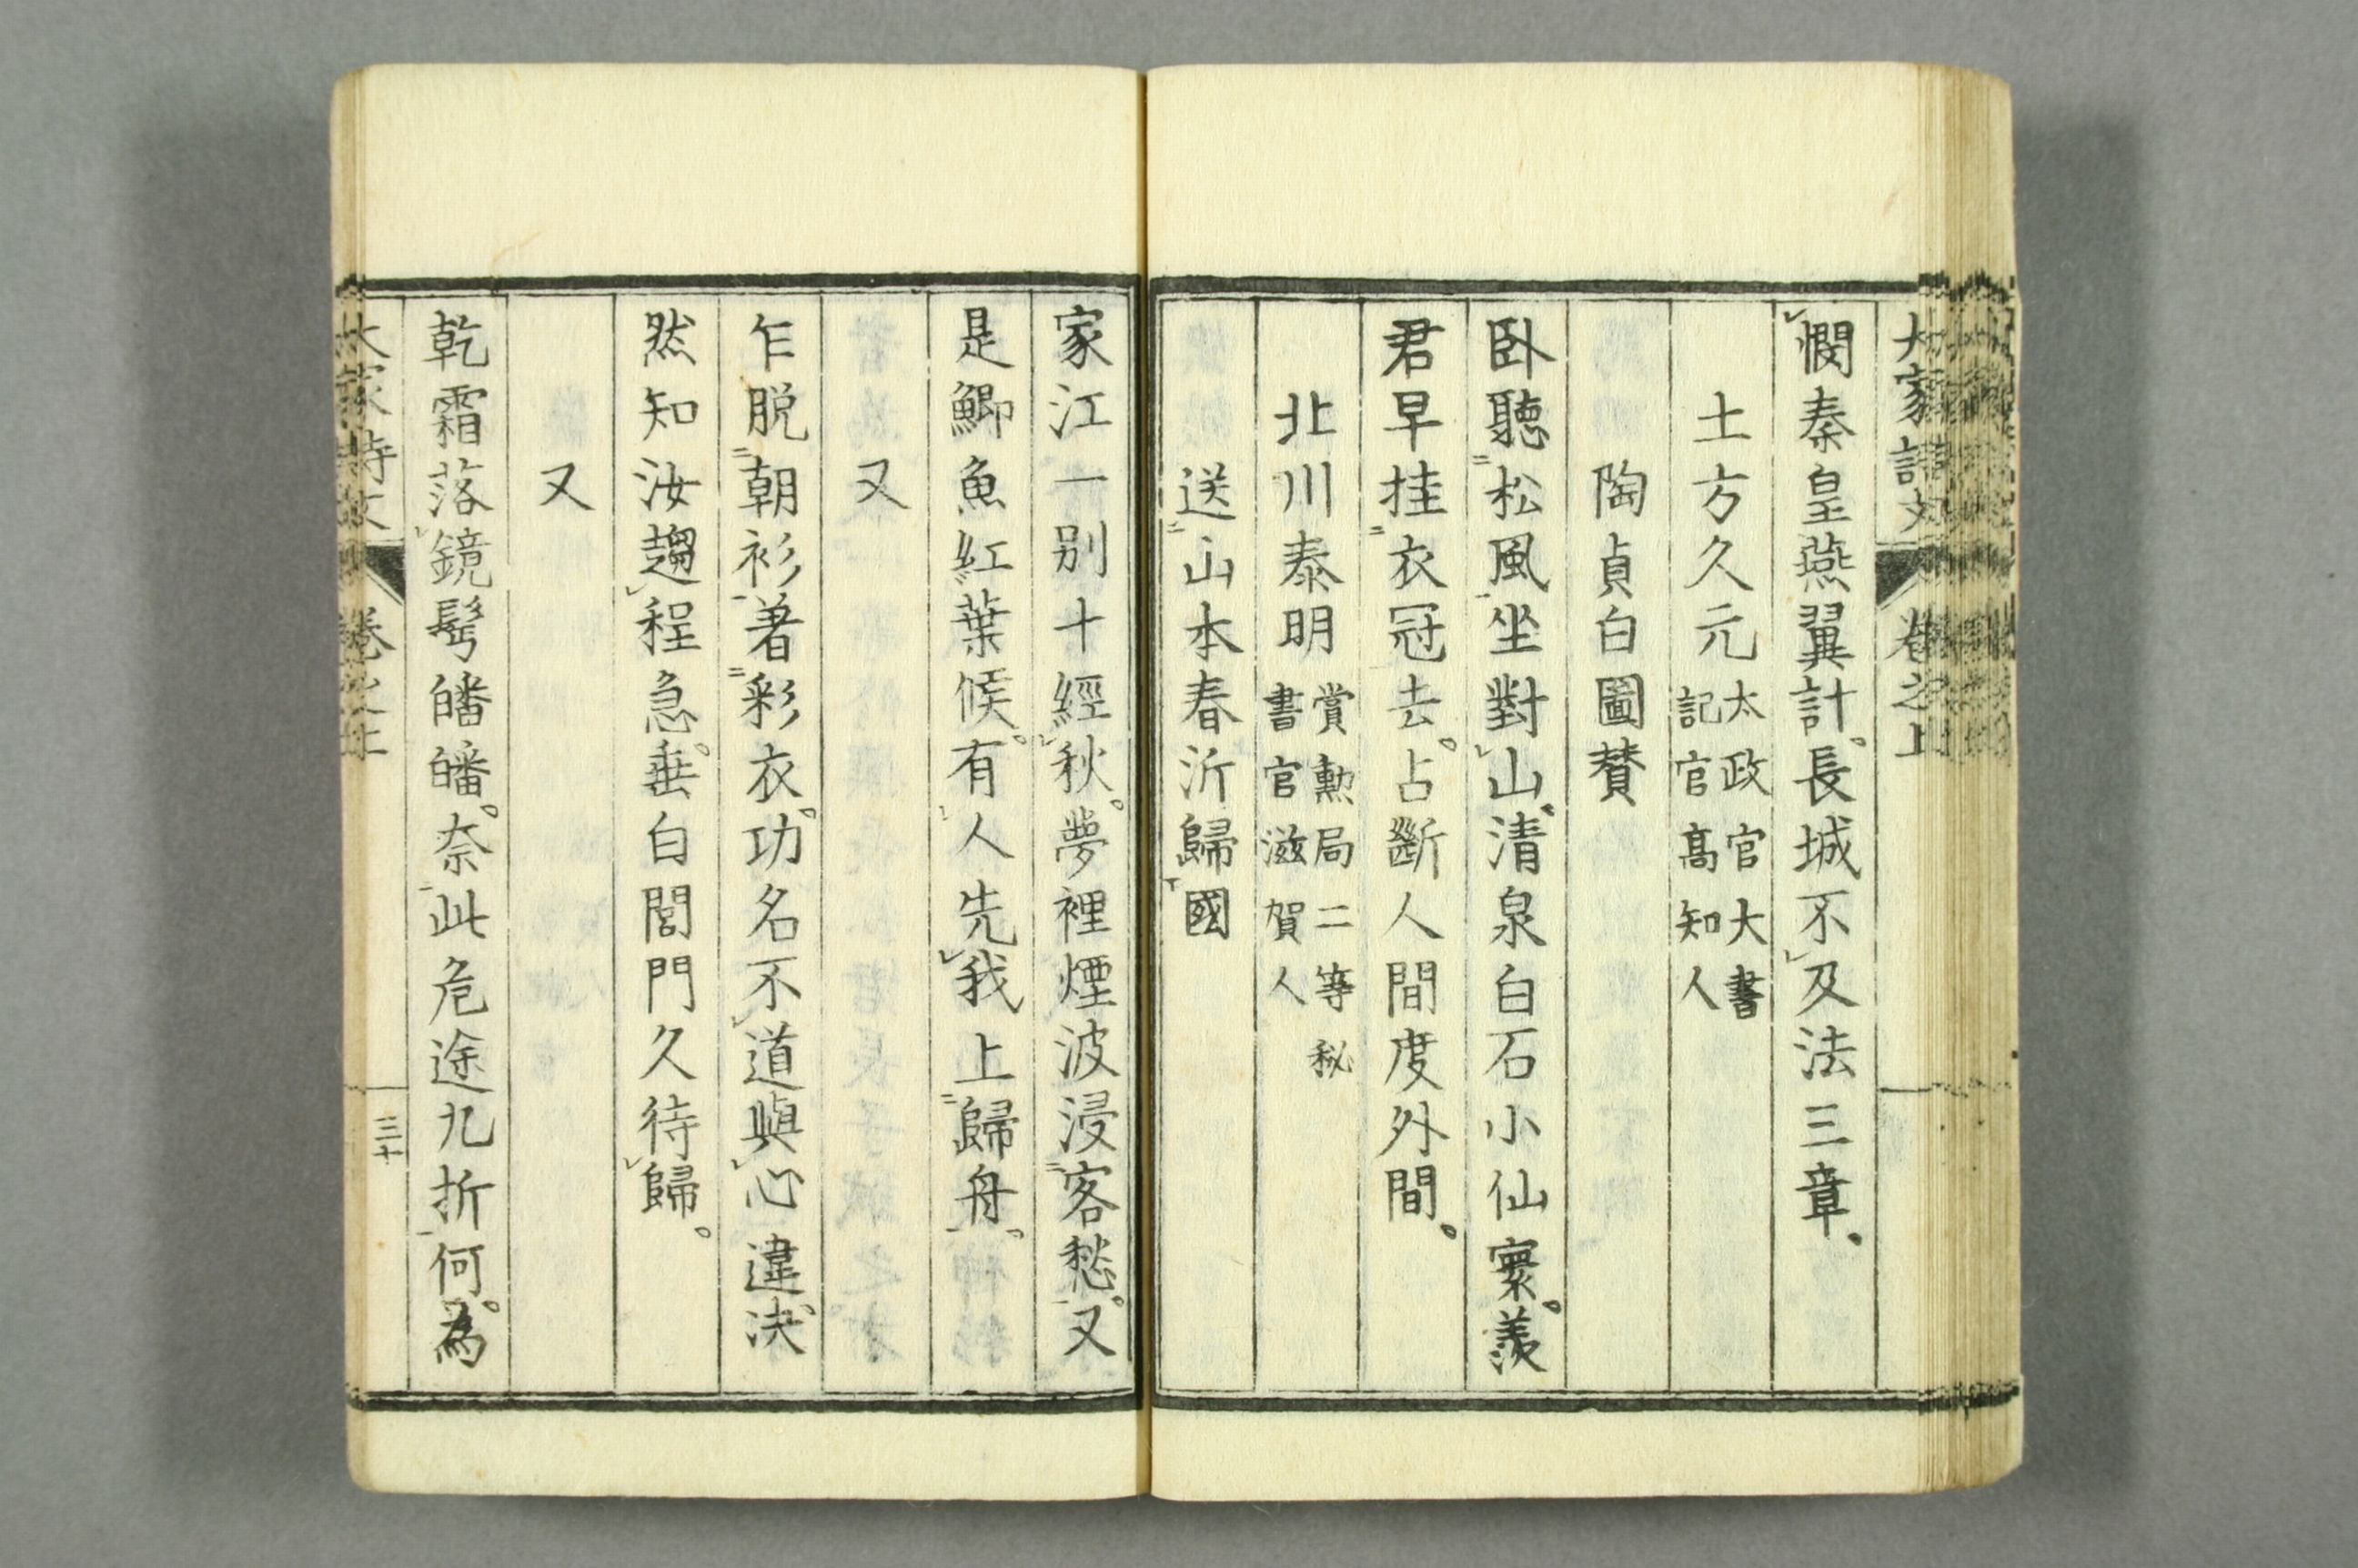 大家詩文 卷之上
憫秦皇燕翼計。長城不及法三章。
土方久元 太政官大書
記官高知人
陶貞白圖賛
臥聽松風坐對山。清泉白石小仙寰。羨
君早挂衣冠去。占斷人間度外間。
北川泰明 賞勲局二等秘
書官滋賀人
送山本春沂歸國
家江一別十經秋。夢裡煙波浸客愁。又
是鯽魚紅葉候。有人先我上歸舟。
又
乍脱朝衫著彩衣。功名不道與心違。決
然知汝趨程急。垂白閭門久待歸。
又
乾霜落鏡髩皤皤。奈此危途九折何。為
大家詩文 卷之上 三十